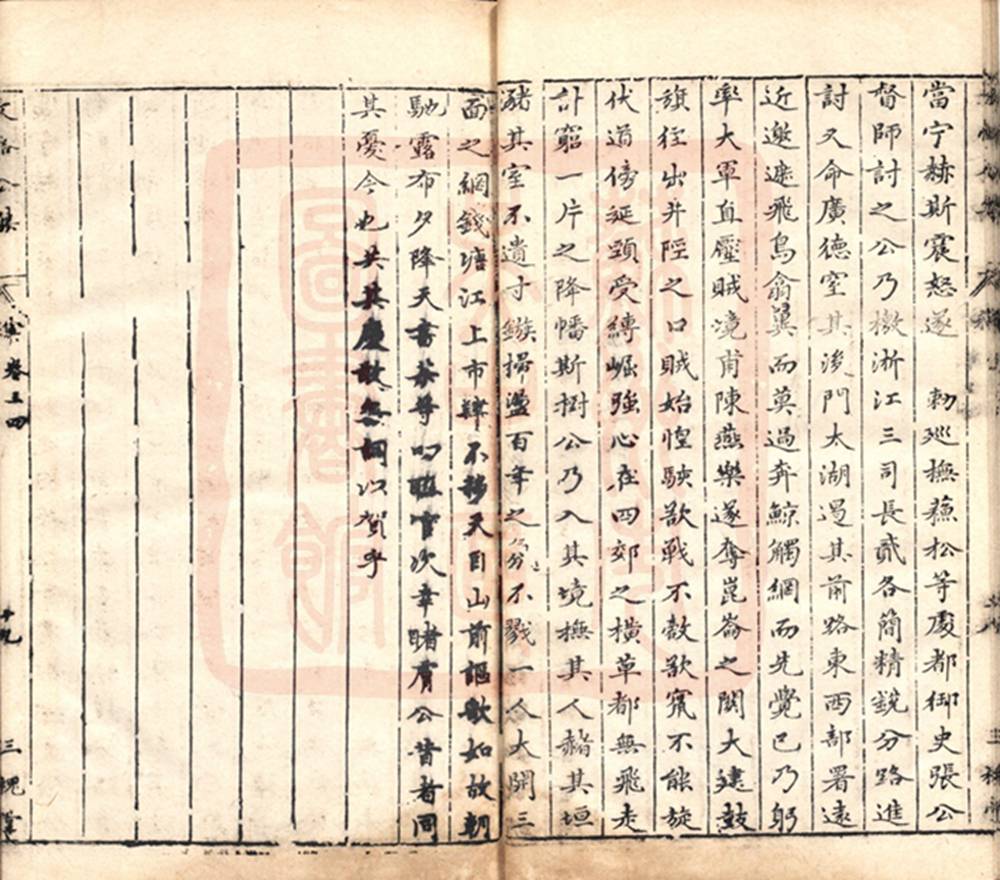 當宁赫斯震怒遂 勅廵撫蘓松等處都御史張公
督師討之公乃檄浙江三司長貳各簡精銳分路進
討又命廣德窒其後門太湖遏其前路東西部署遠
近邀遮飛鳥翕翼而莫過奔鯨觸網而先覺已乃躬
率大軍直壓賊境甫陳燕樂遂奪崑崙之關大建鼓
旗徑出井陘之口賊始惶駭欲戰不敢欲竄不能旋
伏道傍延頸受縛崛強心在四郊之橫草都無飛走
計窮一片之降幡斯樹公乃入其境撫其人赭其垣
瀦其室不遺寸鏃掃盪百年之氛不戮一人大開三
面之網錢塘江上市肆不移天目山前謳歌如故朝
馳露布夕降天書恭等叨聯官次幸睹膚公昔者同
其憂今也共其慶敢無詞以賀乎
卷三四
十九
三槐堂